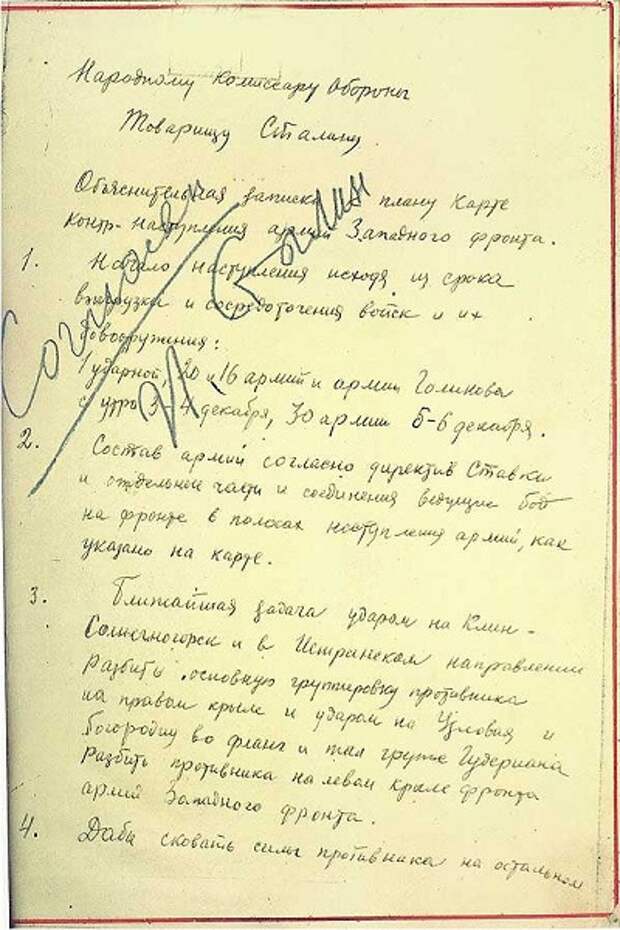 Народному Комиссару Обороны
Товарищу Сталину
Объяснительная записка плану карте
контр-наступления армий Западного фронта.
1. Начало наступления исходя из срока
выгрузки и сосредоточения войск и их
довооружения:
1 ударной, 20 и 16 армий и армии Голикова
с утра 3-4 декабря, 30 армии 5-6 декабря.
2. Состав армий согласно директив Ставки
и отдельные части и соединения ведущие бой
на фронте в полосах наступления армий, как
указано на карте.
3. Ближайшая задача ударом на Клин-
Солнечногорск и в Истринском направлении
разбить основную группировку противника
на правом крыле и ударом на Узловая и
Богородицк во фланг и тыл группе Гудериана
разбить противника на левом крыле фронта
армий Западного фронта.
4. Дабы сковать силы противника на остальном
Согласен
Сталин